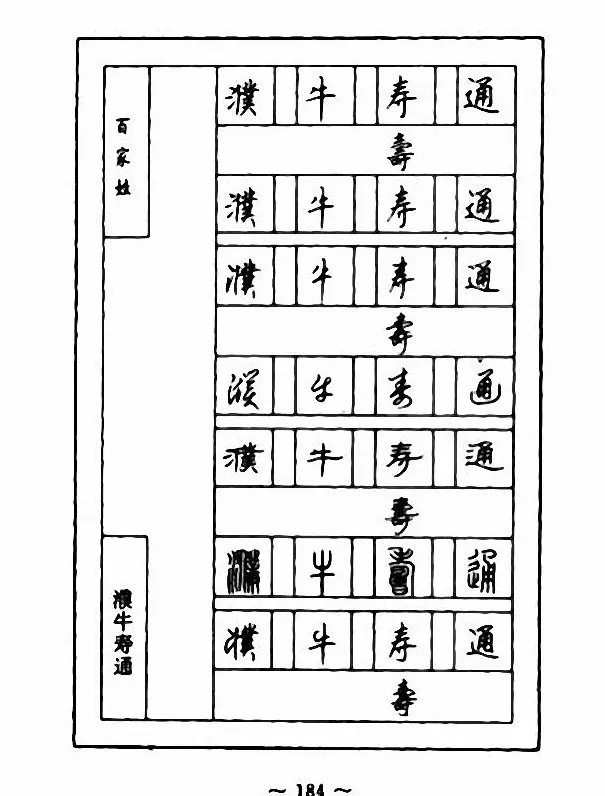 百家姓
濮牛寿通
濮 牛 寿 通
壽
濮 牛 寿 通
濮 牛 寿 通
壽
濮 牛 寿 通
濮 牛 寿 通
壽
濮 牛 壽 通
濮 牛 寿 通
壽
~ 184 ~